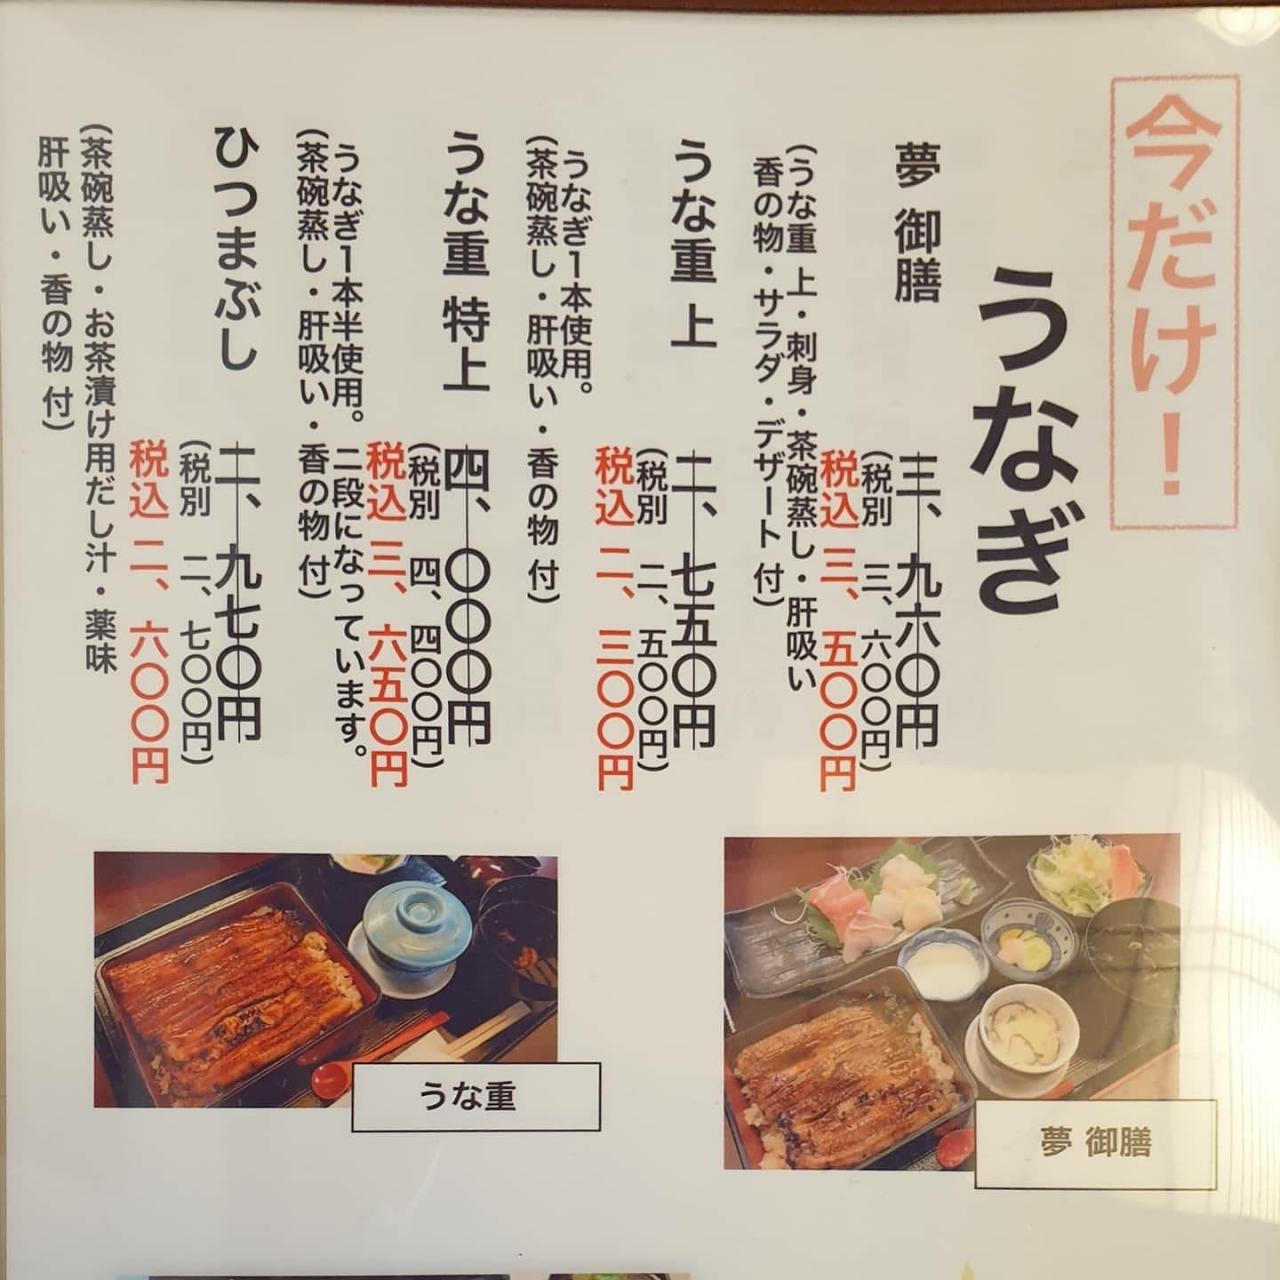 今だけ！
うなぎ
夢 御膳
三、九六〇円
（税別 三、六〇〇円）
税込 三、五〇〇円
（うな重 上・刺身・茶碗蒸し・肝吸い
香の物・サラダ・デザート 付）
うな重 上
二、七五〇円
（税別 二、五〇〇円）
税込 二、三〇〇円
うなぎ1本使用。
（茶碗蒸し・肝吸い・香の物 付）
うな重 特上
四、〇〇〇円
（税別 四、四〇〇円）
税込 三、六五〇円
うなぎ1本半使用。二段になっています。
（茶碗蒸し・肝吸い・香の物 付）
ひつまぶし
二、九七〇円
（税別 二、七〇〇円）
税込 二、六〇〇円
（茶碗蒸し・お茶漬け用だし汁・薬味
肝吸い・香の物 付）
うな重
夢 御膳